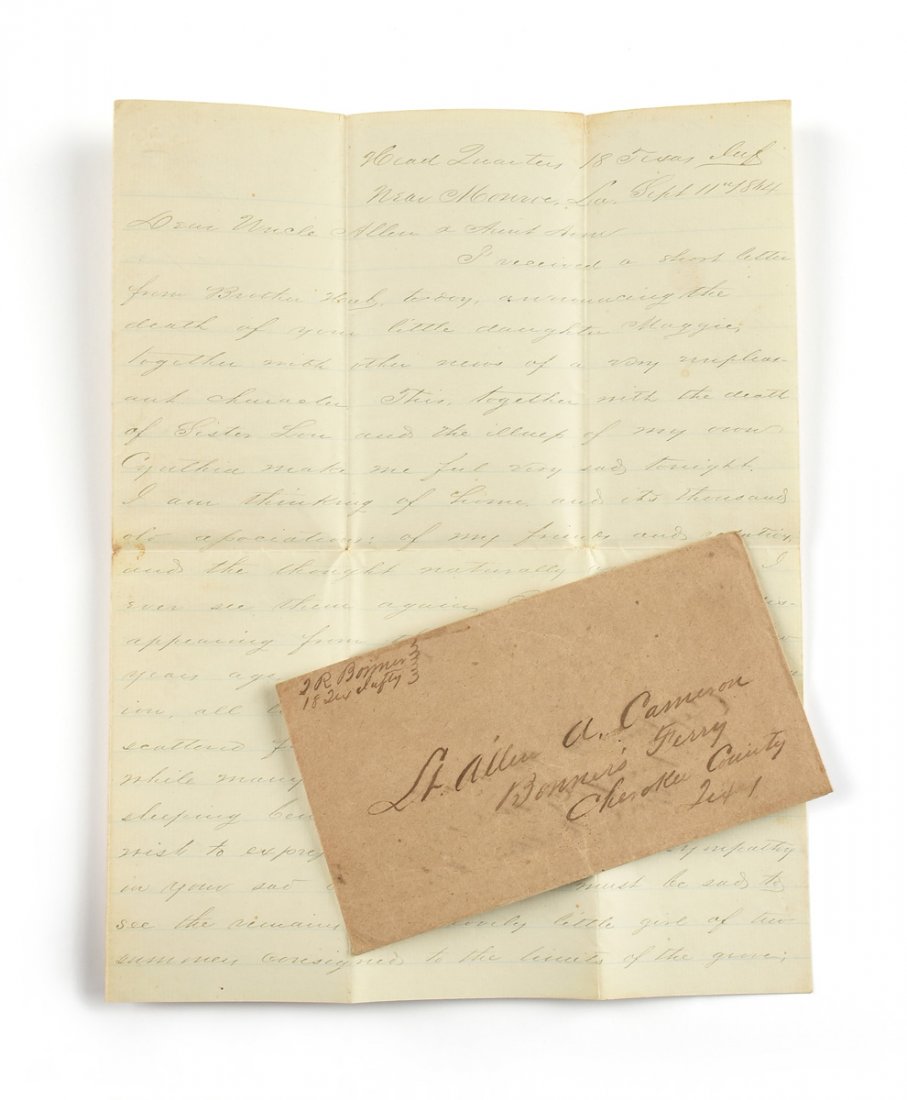 Head Quarters 18 Texas Inf
Near Monroe, La. Sept 11th 1864
Dear Uncle Allen & Aunt Ann
I received a short letter
from Brother to day, announcing the
death of your little daughter Maggie,
together with other news of a very unpleas-
ant character. This, together with the death
of Sister Lou and the illness of my own
Cynthia make me feel very sad tonight.
I am thinking of home and its thousand
associations; of my friends and relatives
and the thought naturally I
ever see them again
appearing from
years ago
ion, all
scattered
while many
sleeping
wish to sympathy
in your sad must be sad to
see the remains lovely little girl of two
summers consigned to the limits of the grave;
J R Bonner
18 Tex Infty
Lt. Allen A. Cameron
Bonner's Ferry
Cherokee County
Texas